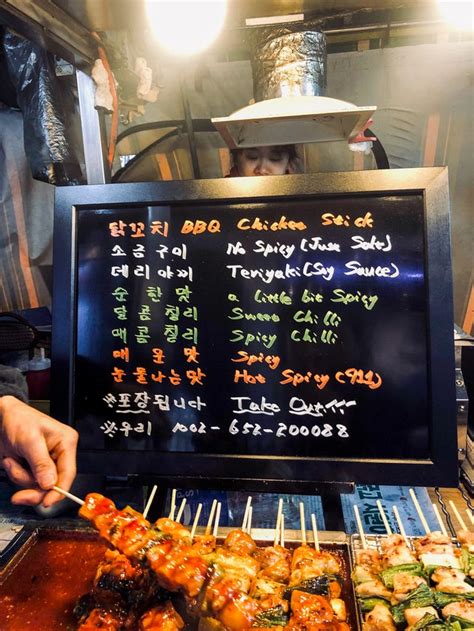 닭꼬치 BBQ Chicken Stick
소금구이 No Spicy (Just Salt)
데리야끼 Teriyaki (Soy Sauce)
순한맛 a little bit Spicy
달콤칠리 Sweet Chilli
매콤칠리 Spicy Chilli
매운맛 Spicy
눈물나는맛 Hot Spicy (911)
※포장됩니다 Take Out
※우리 1002-652-200088